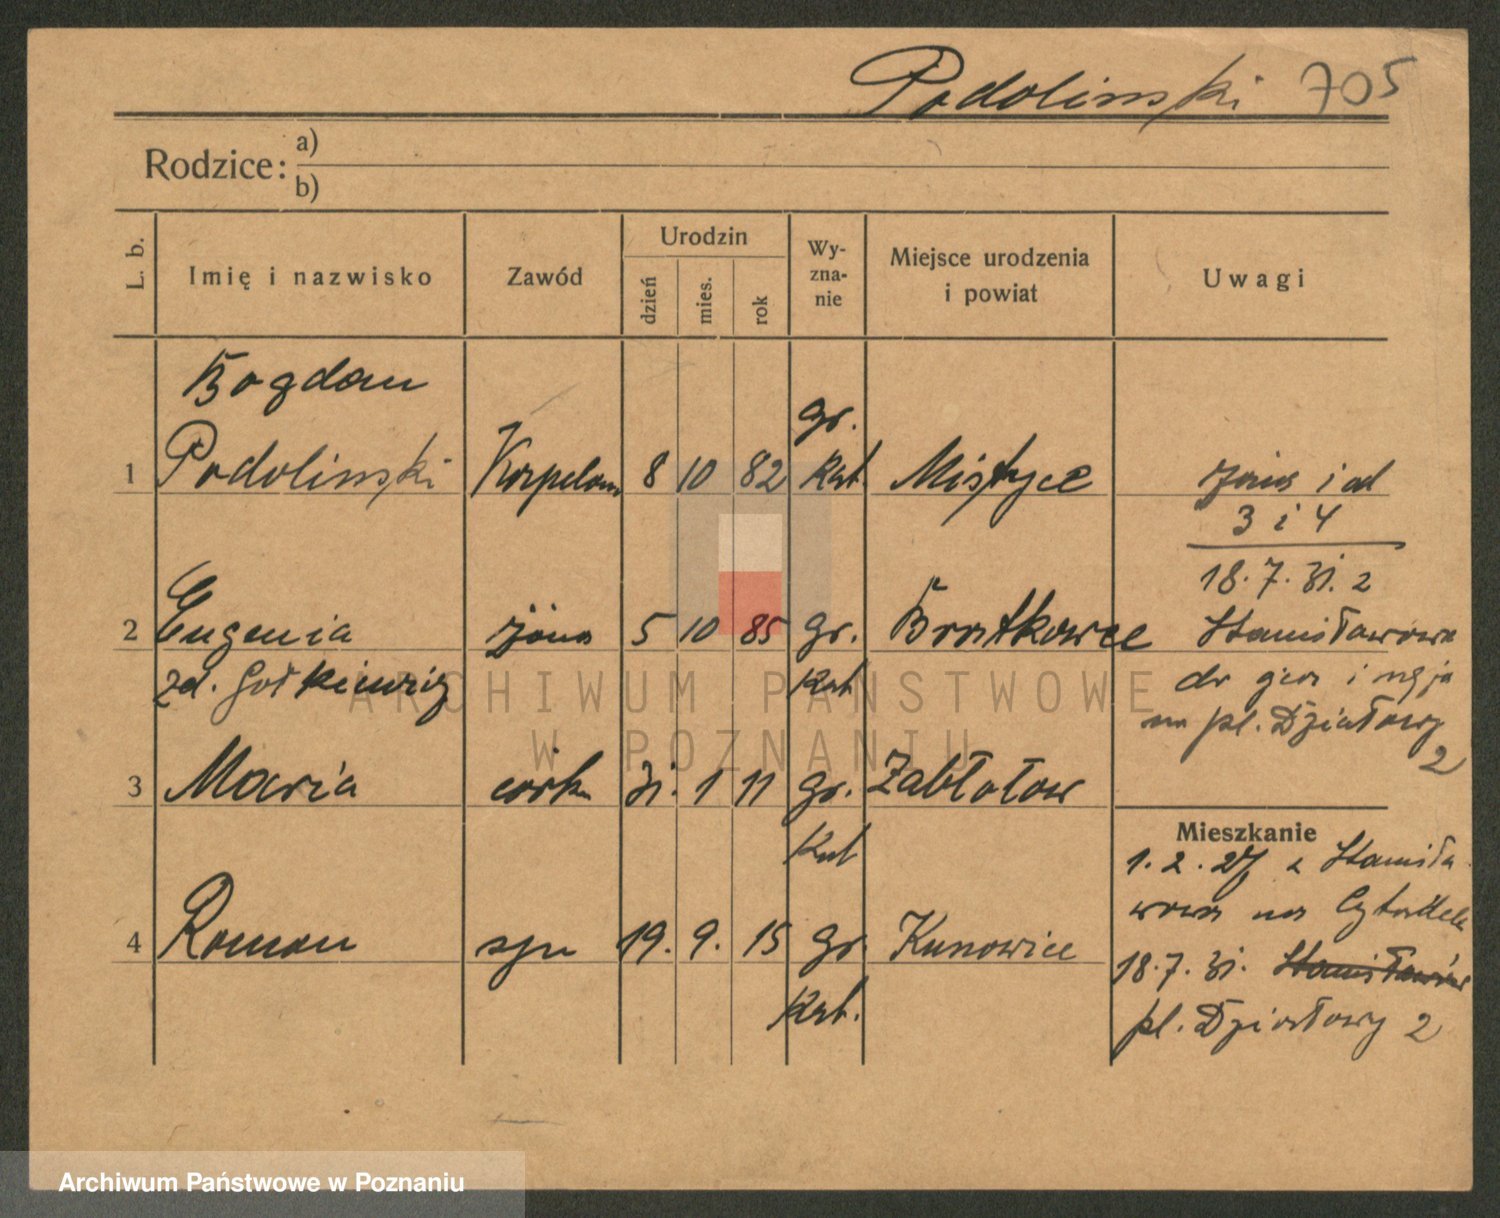 Podolinski 705
Rodzice: a)
b)
L. b. Imię i nazwisko Zawód Urodzin dzień mies. rok Wy-zna-nie Miejsce urodzenia i powiat Uwagi
Bogdan
gr.
1 Podolinski Kapelan 8 10 82 Kat. Mistyce żona i od
3 i 4
18.7.31. z
2 Eugenia żona 5 10 85 gr. Brostkowce Stanisławowa
zd. Gołkiewicz Kat.
na pl. Działowy
2
3 Maria córka 31. 1 11 gr. Zabłotow
Mieszkanie
Kat
1.2.27 z Stanisła
wowa na Cytadelę
4 Roman syn 19. 9. 15 gr Kunowice
18.7.31. Stanisławów
Kat.
pl. Działowy 2
ARCHIWUM PAŃSTWOWE
W POZNANIU
Archiwum Państwowe w Poznaniu